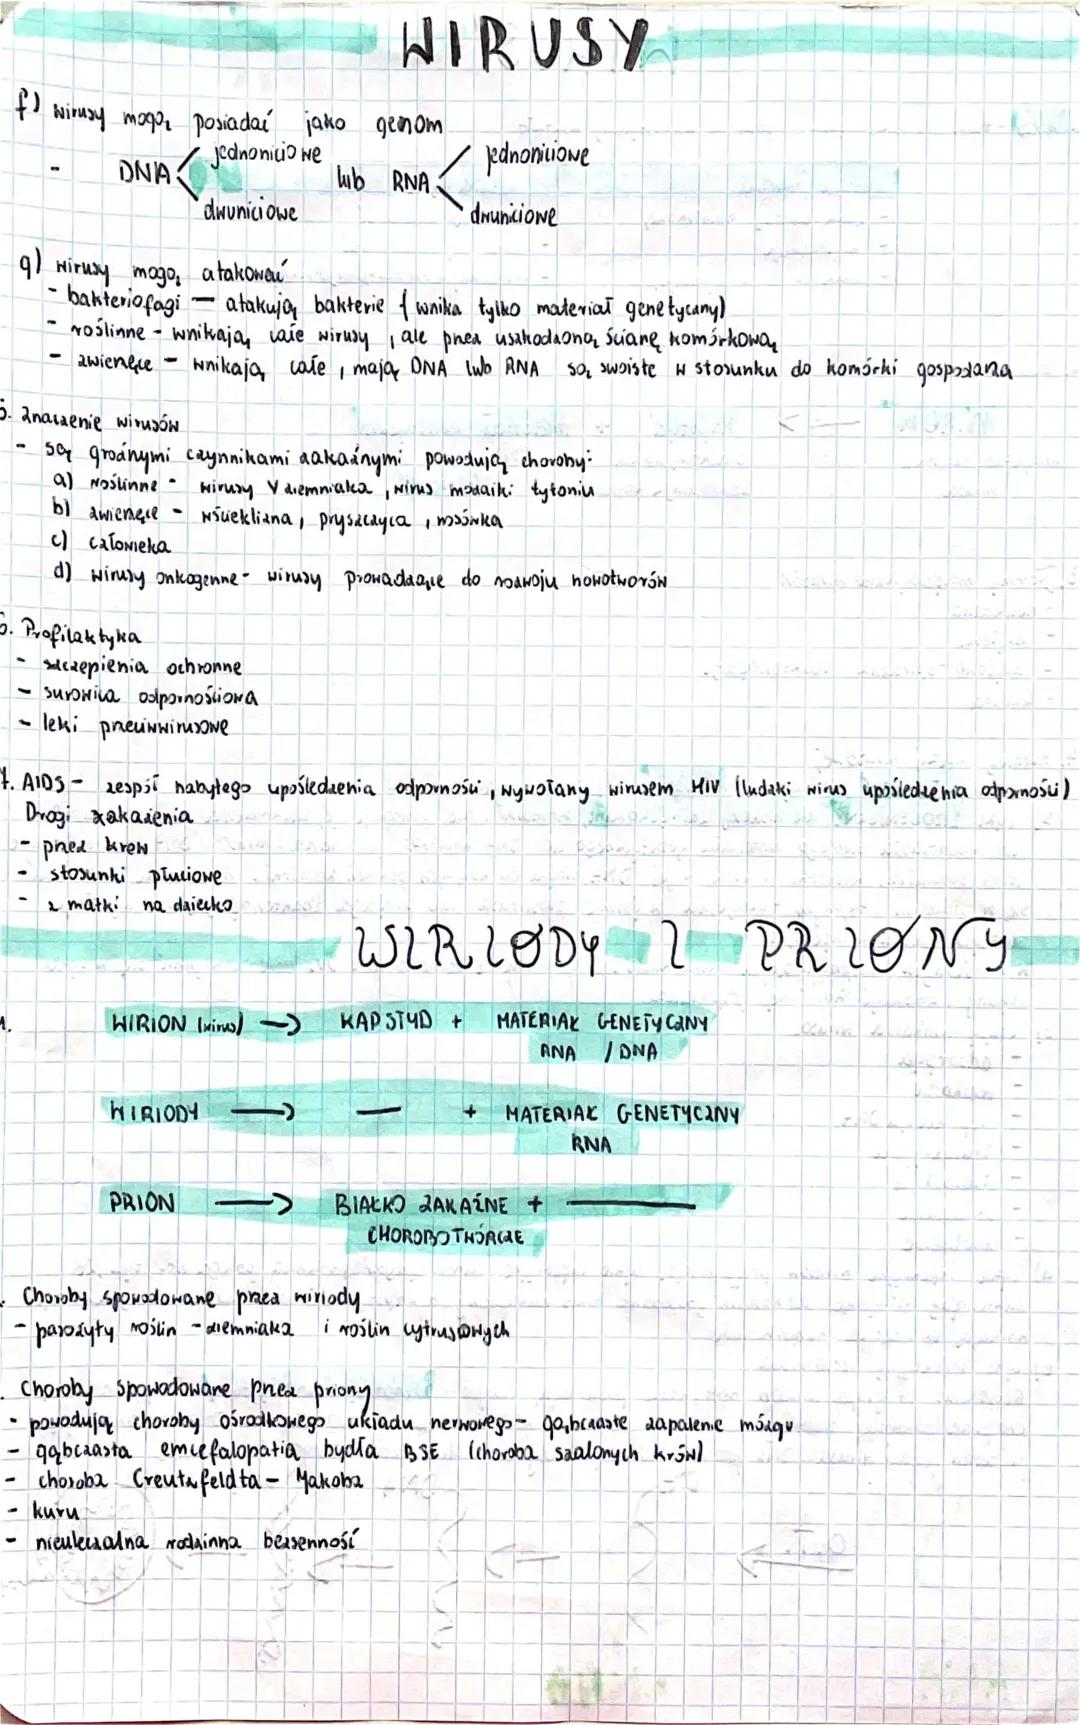 WIRUSY
f) wirusy mogą posiadać jako genom
- DNA jednoniciowe lub RNA jednoniciowe
dwuniciowe dwuniciowe
g) wirusy mogą atakować
- bakteriofagi — atakują bakterie (wnika tylko materiał genetyczny)
- roślinne - wnikają całe wirusy, ale przez uszkodzoną ścianę komórkową
- zwierzęce - wnikają całe, mają DNA lub RNA są swoiste w stosunku do komórki gospodarza
5. Znaczenie wirusów
- są groźnymi czynnikami zakaźnymi powodują choroby:
a) roślinne - wirusy Y ziemniaka, wirus mozaiki tytoniu
b) zwierzęce - wścieklizna, pryszczyca, nosówka
c) człowieka
d) wirusy onkogenne - wirusy prowadzące do rozwoju nowotworów
6. Profilaktyka
- szczepienia ochronne
- surowica odpornościowa
- leki przeciwwirusowe
7. AIDS - zespół nabytego upośledzenia odporności, wywołany wirusem HIV (ludzki wirus upośledzenia odporności)
Drogi zakażenia
- przez krew
- stosunki płciowe
- z matki na dziecko
WIRIODY I PRIONY
1. WIRION (wirus) → KAPSTYD + MATERIAŁ GENETYCZNY
RNA / DNA
WIRIODY → — + MATERIAŁ GENETYCZNY
RNA
PRION → BIAŁKO ZAKAŹNE + —
CHOROBOTWÓRCZE
. Choroby spowodowane przez wiriody
- pasożyty roślin - ziemniaka i roślin cytrusowych
. Choroby spowodowane przez priony
- powodują choroby ośrodkowego układu nerwowego - gąbczaste zapalenie mózgu
- gąbczasta emcefalopatia bydła BSE (choroba szalonych krów)
- choroba Creutzfeldta - Jakoba
- kuru
- nieuleczalna rodzinna bezsenność